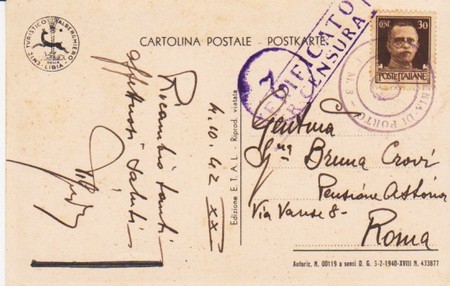 ENTE TURISTICO ALBERGHIERO
LIBIA
CARTOLINA POSTALE - POSTKARTE
VERIFICATO
PER CENSURA
7
CENT. 30
POSTE ITALIANE
DI PORTO
N. 3
4.10.42 XX
Ricambio tanti
affettuosi saluti
Edizione E.T.A.L. - Riprod. vietata
Gentma
Sig.na Bruna Crovi
Pensione Astoria
Via Varese 8-
Roma
Autoriz. N. 00119 a sensi D. G. 5-2-1940-XVIII N. 433877